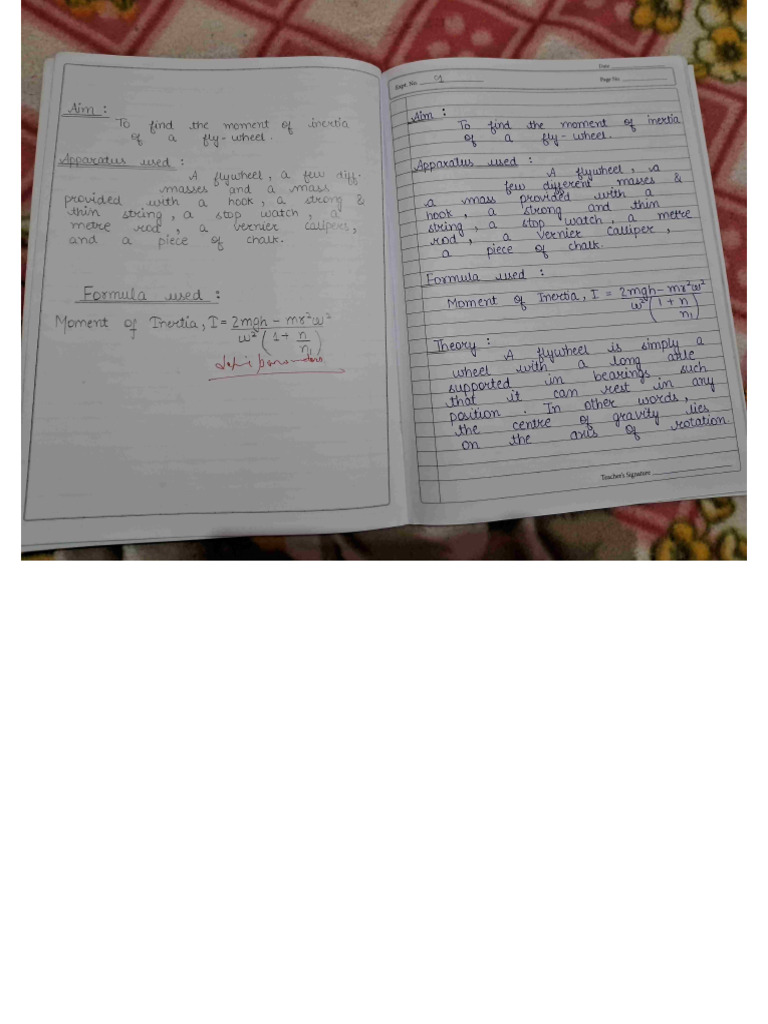 Aim :
To find the moment of inertia
of a fly-wheel.
Apparatus used :
A flywheel, a few diff.
masses and a mass
provided with a hook, a strong &
thin string, a stop watch, a
metre rod, a vernier calipers,
and a piece of chalk.
Formula used :
Moment of Inertia, I = 2mgh - mr²ω²
ω² (1 + n
n₁)
Date
Expt. No. 9
Page No.
Aim :
To find the moment of inertia
of a fly-wheel.
Apparatus used :
A flywheel, a
few different masses &
a mass provided with a
hook, a strong and thin
string, a stop watch, a metre
rod, a vernier calliper,
a piece of chalk.
Formula used :
Moment of Inertia, I = 2mgh - mr²ω²
ω² (1 + n
n₁)
Theory :
A flywheel is simply a
wheel with a long axle
supported in bearings such
that it can rest in any
position. In other words,
the centre of gravity lies
on the axis of rotation.
Teacher's Signature